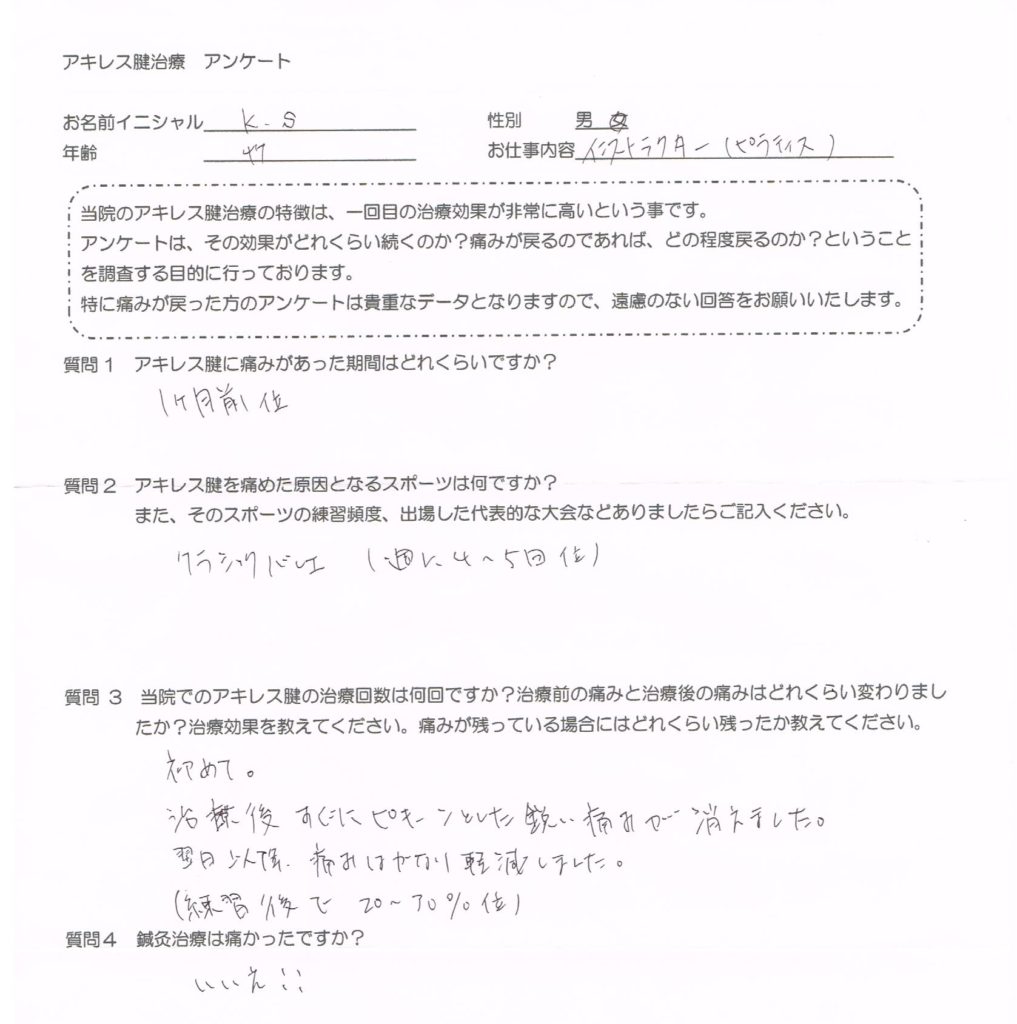 アキレス腱治療 アンケート
お名前イニシャル K.S 性別 男 女
年齢 47 お仕事内容 インストラクター(ピラティス)
当院のアキレス腱治療の特徴は、一回目の治療効果が非常に高いという事です。
アンケートは、その効果がどれくらい続くのか？痛みが戻るのであれば、どの程度戻るのか？ということ
を調査する目的に行っております。
特に痛みが戻った方のアンケートは貴重なデータとなりますので、遠慮のない回答をお願いいたします。
質問1 アキレス腱に痛みがあった期間はどれくらいですか？
1ヶ月前位
質問2 アキレス腱を痛めた原因となるスポーツは何ですか？
また、そのスポーツの練習頻度、出場した代表的な大会などありましたらご記入ください。
クラシックバレエ (週に4〜5回位)
質問 3 当院でのアキレス腱の治療回数は何回ですか？治療前の痛みと治療後の痛みはどれくらい変わりまし
たか？治療効果を教えてください。痛みが残っている場合にはどれくらい残ったか教えてください。
初めて。
治療後すぐにピキーンとした鋭い痛みが消えました。
翌日以降、痛みはかなり軽減しました。
(練習後で 20〜30%位)
質問4 鍼灸治療は痛かったですか？
いいえ!!